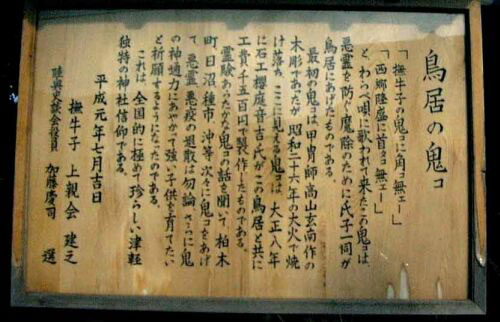 鳥居の鬼コ
「撫牛子の鬼コに角コ無ェー」
「西郷隆盛に首タコ無ェー」
と、わらべ唄に歌われて来たこの鬼コは、
悪霊を防ぐ魔除のために氏子一同が
鳥居にあげたものである。
最初の鬼コは、甲冑師高山玄南作の
木彫であったが、昭和二十六年の大火で焼
け落ち、ここに見える鬼コは、大正八年
に石工櫻庭音吉氏がこの鳥居と共に
工費千五百円で製作したものである。
霊験あらたかな鬼コの話を聞いて、柏木
町、日沼、種市、沖等次々に鬼コをあげ
て、悪霊、悪疫の退散は勿論、さらに鬼
の神通力にあやかって強い子供を育てたい
と祈願するようになったのである。
これは、全国的に極めて珍らしい津軽
独特の神社信仰である。
平成元年七月吉日
撫牛子 上親会 建之
陸奥史談会役員 加藤慶司 選